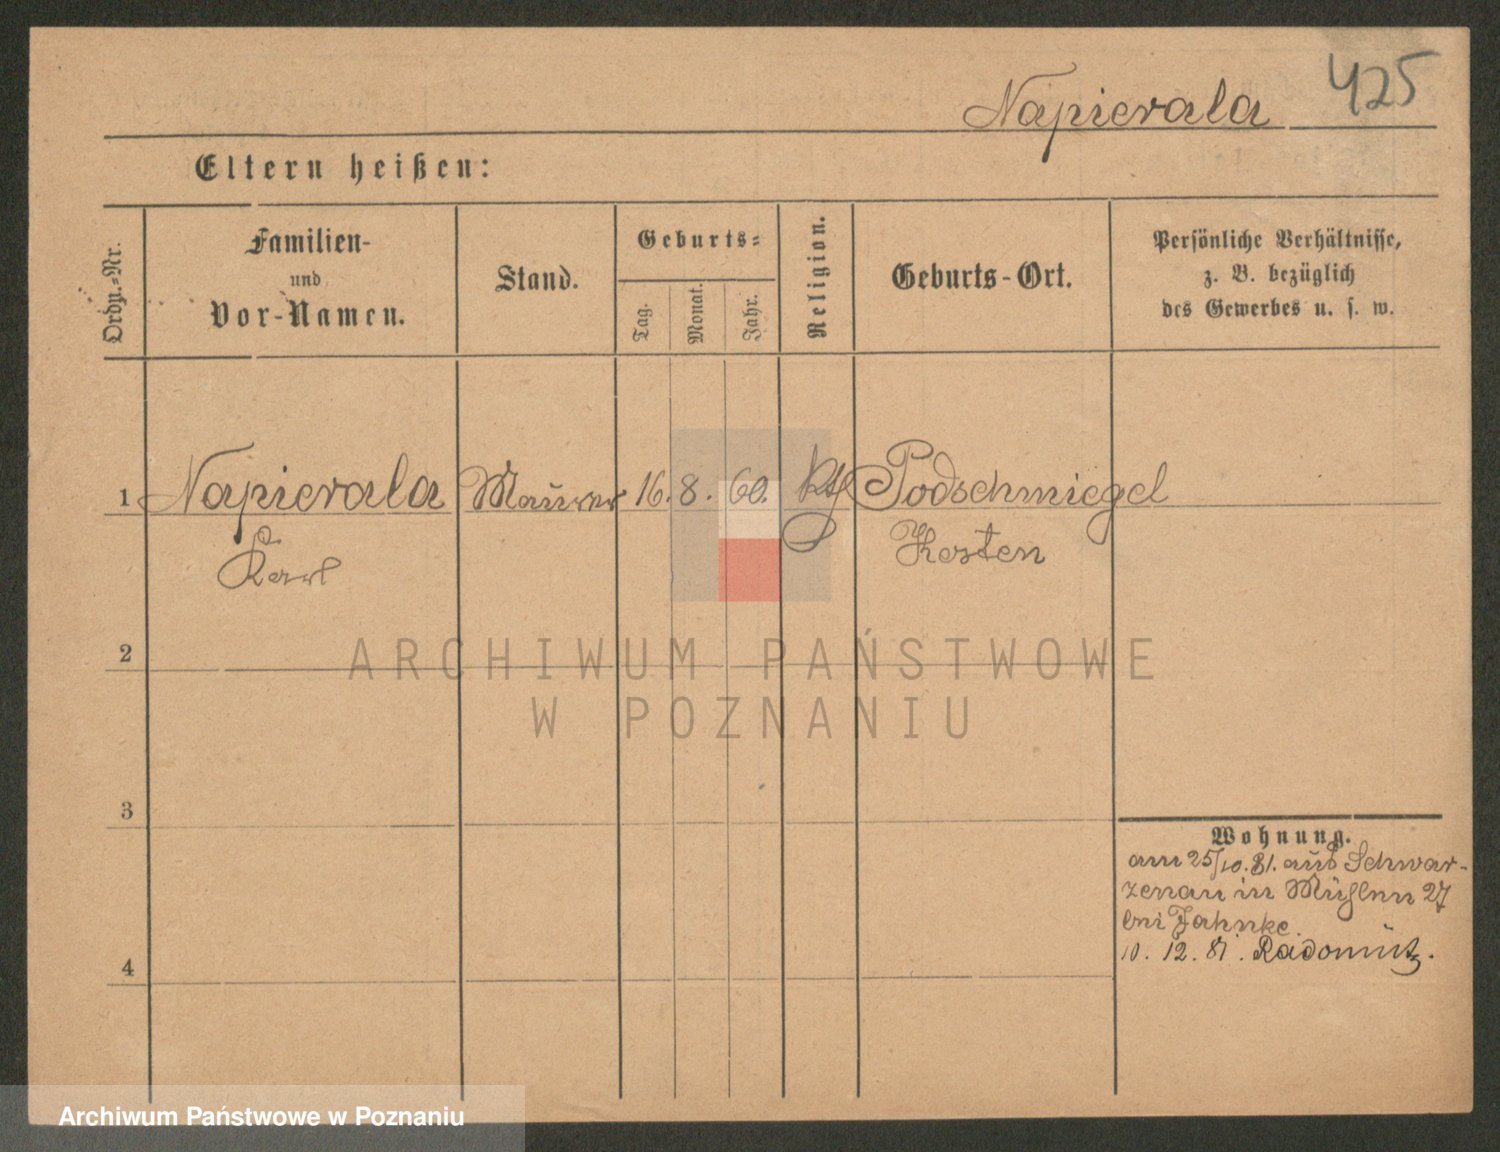 Napierala 425
Eltern heißen:
Ordn.-Nr.
Familien-
und
Vor-Namen.
Stand.
Geburts-
Tag.
Monat.
Jahr.
Religion.
Geburts-Ort.
Persönliche Verhältnisse,
z. B. bezüglich
des Gewerbes u. s. w.
1 Napierala Maurer 16. 8. 60. kth Podschmiegel
Karl Kosten
2
ARCHIWUM PAŃSTWOWE
W POZNANIU
3
Wohnung.
am 25/10. 81. aus Schwar-
zenau in Mühlen 27
bei Jahnke.
10. 12. 81. Radomitz.
4
Archiwum Państwowe w Poznaniu